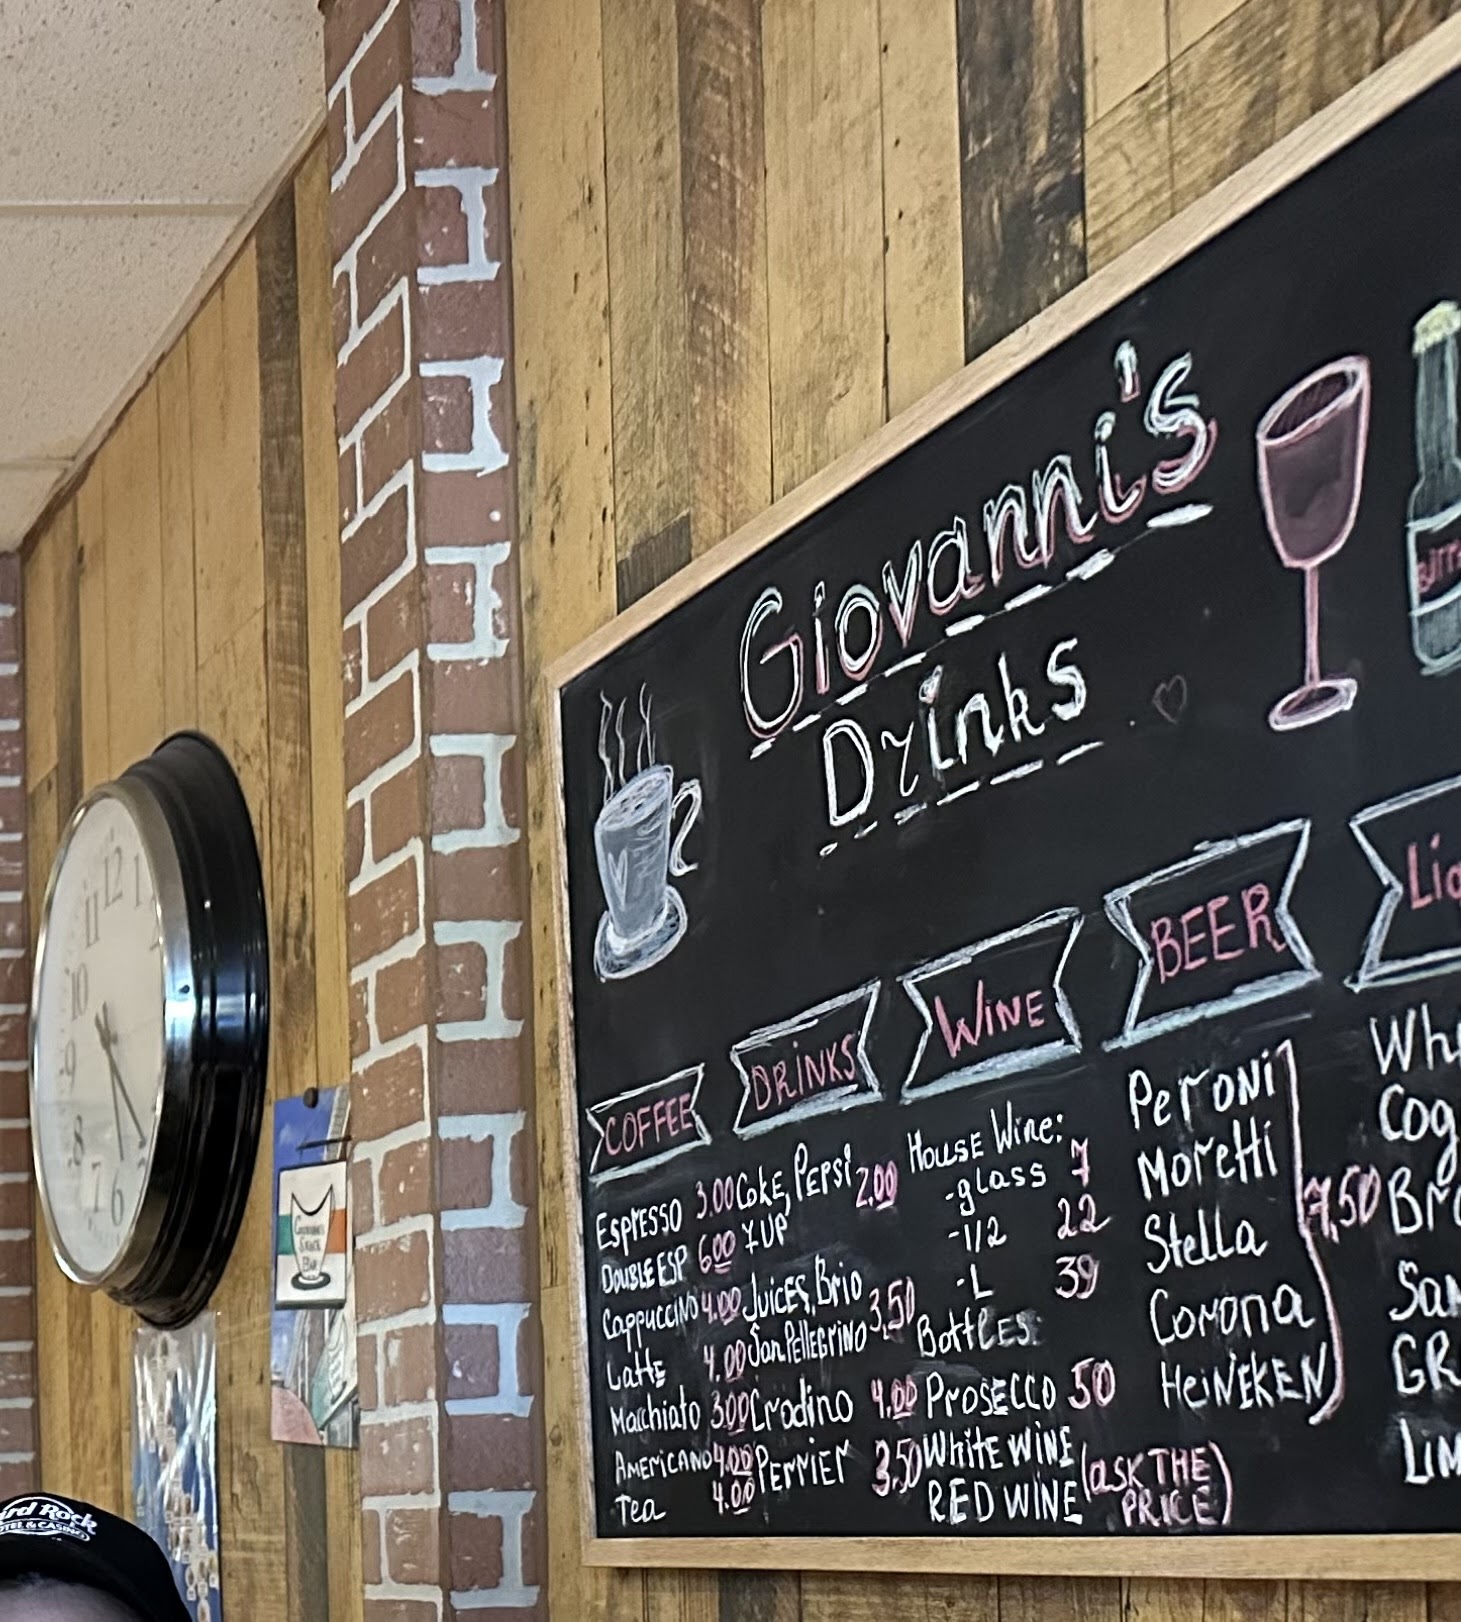 Giovanni's
Drinks
COFFEE
ESPRESSO 3.00
DOUBLE ESP 6.00
Cappuccino 4.00
Latte 4.00
Macchiato 3.00
AMERICANO 4.00
Tea 4.00
DRINKS
Coke, PEPSi 2.00
7UP
Juices, Brio 3,50
San PELLEGRINO
Crodino 4.00
PERRIER 3.50
WiNE
House Wine:
-glass 7
-1/2 22
-L 39
Bottles:
PROSECCO 50
White WiNE (aSK THE
RED WiNE PRICE)
BEER
PeroNi
Moretti
Stella 7,50
Corona
HeiNEKEN
Lio
Wh
Cog
Br
Sam
GR
LiM
12
1
11
10
9
8
7
6
GIOVANNI'S
SNACK
BAR
ard Rock
OTEL & CASINO